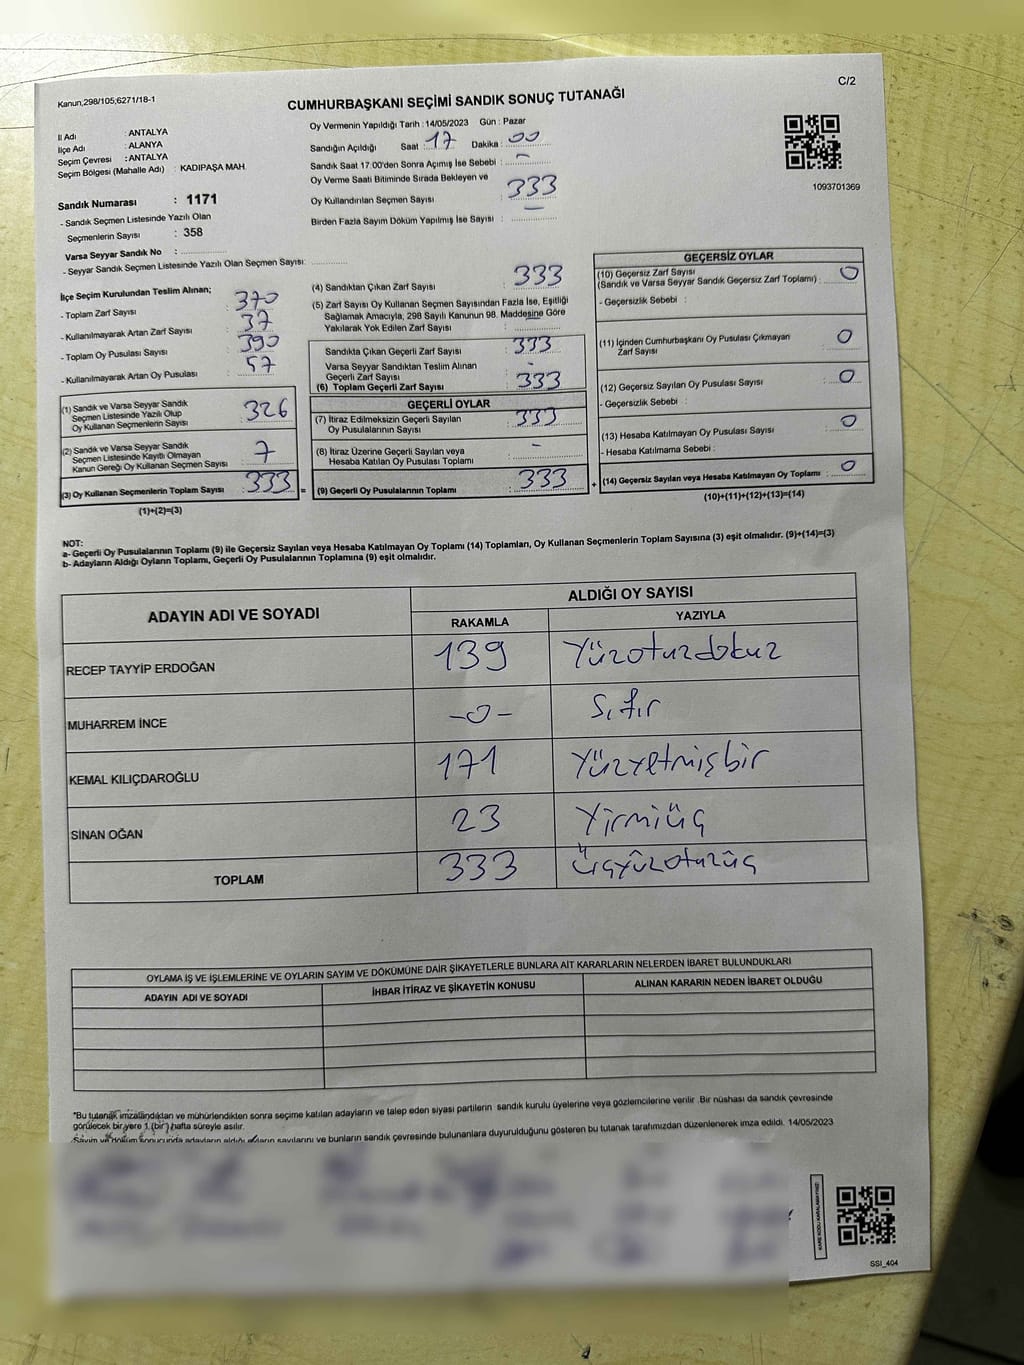 C/2
Kanun,298/105;6271/18-1
CUMHURBAŞKANI SEÇİMİ SANDIK SONUÇ TUTANAĞI
İl Adı : ANTALYA
İlçe Adı : ALANYA
Seçim Çevresi : ANTALYA
Seçim Bölgesi (Mahalle Adı) : KADIPAŞA MAH.
Sandık Numarası : 1171
- Sandık Seçmen Listesinde Yazılı Olan
Seçmenlerin Sayısı : 358
Varsa Seyyar Sandık No :
- Seyyar Sandık Seçmen Listesinde Yazılı Olan Seçmen Sayısı:
Oy Vermenin Yapıldığı Tarih : 14/05/2023 Gün : Pazar
Sandığın Açıldığı Saat : 17 Dakika : 00
Sandık Saat 17:00'den Sonra Açımış İse Sebebi : -
Oy Verme Saati Bitiminde Sırada Bekleyen ve
Oy Kullandırılan Seçmen Sayısı : 333
Birden Fazla Sayım Döküm Yapılmış İse Sayısı : -
1093701369
İlçe Seçim Kurulundan Teslim Alınan;
- Toplam Zarf Sayısı : 370
- Kullanılmayarak Artan Zarf Sayısı : 37
- Toplam Oy Pusulası Sayısı : 390
- Kullanılmayarak Artan Oy Pusulası : 57
(1) Sandık ve Varsa Seyyar Sandık
Seçmen Listesinde Yazılı Olup
Oy Kullanan Seçmenlerin Sayısı : 326
(2) Sandık ve Varsa Seyyar Sandık
Seçmen Listesinde Kayıtlı Olmayan
Kanun Gereği Oy Kullanan Seçmen Sayısı : 7
(3) Oy Kullanan Seçmenlerin Toplam Sayısı : 333
(1)+(2)=(3)
(4) Sandıktan Çıkan Zarf Sayısı : 333
(5) Zarf Sayısı Oy Kullanan Seçmen Sayısından Fazla İse, Eşitliği
Sağlamak Amacıyla, 298 Sayılı Kanunun 98. Maddesine Göre
Yakılarak Yok Edilen Zarf Sayısı :
Sandıkta Çıkan Geçerli Zarf Sayısı : 333
Varsa Seyyar Sandıktan Teslim Alınan
Geçerli Zarf Sayısı : -
(6) Toplam Geçerli Zarf Sayısı : 333
GEÇERLİ OYLAR
(7) İtiraz Edilmeksizin Geçerli Sayılan
Oy Pusulalarının Sayısı : 333
(8) İtiraz Üzerine Geçerli Sayılan veya
Hesaba Katılan Oy Pusulası Toplamı : -
= (9) Geçerli Oy Pusulalarının Toplamı : 333
GEÇERSİZ OYLAR
(10) Geçersiz Zarf Sayısı
(Sandık ve Varsa Seyyar Sandık Geçersiz Zarf Toplamı) : 0
- Geçersizlik Sebebi :
(11) İçinden Cumhurbaşkanı Oy Pusulası Çıkmayan
Zarf Sayısı : 0
(12) Geçersiz Sayılan Oy Pusulası Sayısı : 0
- Geçersizlik Sebebi :
(13) Hesaba Katılmayan Oy Pusulası Sayısı : 0
- Hesaba Katılmama Sebebi :
+ (14) Geçersiz Sayılan veya Hesaba Katılmayan Oy Toplamı : 0
(10)+(11)+(12)+(13)=(14)
NOT:
a- Geçerli Oy Pusulalarının Toplamı (9) ile Geçersiz Sayılan veya Hesaba Katılmayan Oy Toplamı (14) Toplamları, Oy Kullanan Seçmenlerin Toplam Sayısına (3) eşit olmalıdır. (9)+(14)=(3)
b- Adayların Aldığı Oyların Toplamı, Geçerli Oy Pusulalarının Toplamına (9) eşit olmalıdır.
ADAYIN ADI VE SOYADI ALDIĞI OY SAYISI
RAKAMLA YAZIYLA
RECEP TAYYİP ERDOĞAN 139 Yüzotuzdokuz
MUHARREM İNCE -0- Sıfır
KEMAL KILIÇDAROĞLU 171 Yüzyetmişbir
SİNAN OĞAN 23 Yirmiüç
TOPLAM 333 Üçyüzotuzüç
OYLAMA İŞ VE İŞLEMLERİNE VE OYLARIN SAYIM VE DÖKÜMÜNE DAİR ŞİKAYETLERLE BUNLARA AİT KARARLARIN NELERDEN İBARET BULUNDUKLARI
ADAYIN ADI VE SOYADI İHBAR İTİRAZ VE ŞİKAYETİN KONUSU ALINAN KARARIN NEDEN İBARET OLDUĞU
*Bu tutanak imzalandıktan ve mühürlendikten sonra seçime katılan adayların ve talep eden siyasi partilerin sandık kurulu üyelerine veya gözlemcilerine verilir .Bir nüshası da sandık çevresinde
görülecek bir yere 1 (bir) hafta süreyle asılır.
Sayım ve döküm sonucunda adayların aldığı oyların sayılarını ve bunların sandık çevresinde bulunanlara duyurulduğunu gösteren bu tutanak tarafımızdan düzenlenerek imza edildi. 14/05/2023
SSI_404